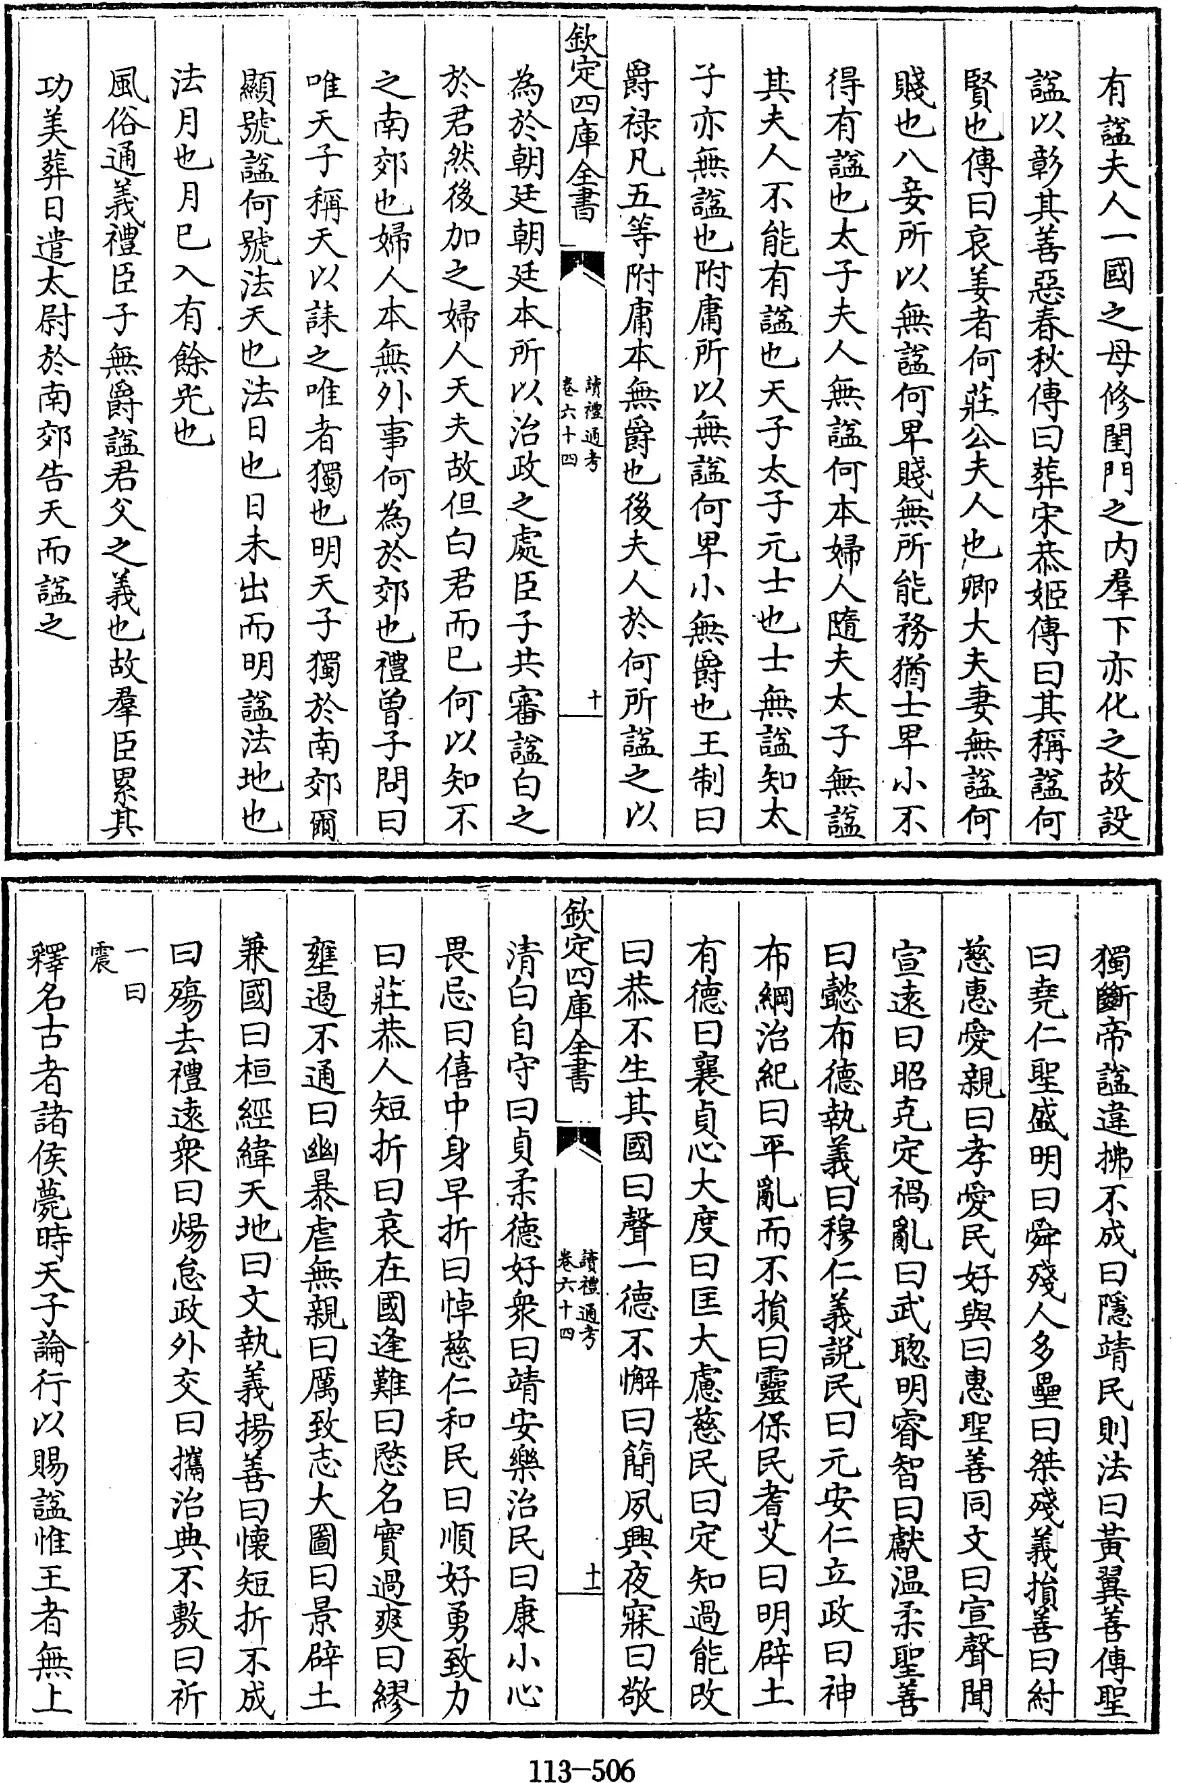 有諡夫人一國之母修閨門之内羣下亦化之故設
諡以彰其善惡春秋傳曰葬宋恭姬傳曰其稱諡何
賢也傳曰哀姜者何莊公夫人也卿大夫妻無諡何
賤也八妾所以無諡何卑賤無所能務猶士卑小不
得有諡也太子夫人無諡何本婦人隨夫太子無諡
其夫人不能有諡也天子太子元士也士無諡知太
子亦無諡也附庸所以無諡何卑小無爵也王制曰
爵禄凡五等附庸本無爵也後夫人於何所諡之以
欽定四庫全書
讀禮通考
卷六十四
十
為於朝廷朝廷本所以治政之處臣子共審諡白之
於君然後加之婦人天夫故但白君而已何以知不
之南郊也婦人本無外事何為於郊也禮曾子問曰
唯天子稱天以誄之唯者獨也明天子獨於南郊爾
顯號諡何號法天也法日也日未出而明諡法地也
法月也月已入有餘光也
風俗通義禮臣子無爵諡君父之義也故羣臣累其
功美葬日遣太尉於南郊告天而諡之
獨斷帝諡違拂不成曰隱靖民則法曰黃翼善傳聖
曰堯仁聖盛明曰舜殘人多壘曰桀殘義損善曰紂
慈惠愛親曰孝愛民好與曰惠聖善同文曰宣聲聞
宣遠曰昭克定禍亂曰武聰明睿智曰獻温柔聖善
曰懿布德執義曰穆仁義說民曰元安仁立政曰神
布綱治紀曰平亂而不損曰靈保民耆艾曰明辟土
有德曰襄貞心大度曰匡大慮慈民曰定知過能改
曰恭不生其國曰聲一德不懈曰簡夙興夜寐曰敬
欽定四庫全書
讀禮通考
卷六十四
十一
清白自守曰貞柔德好衆曰靖安樂治民曰康小心
畏忌曰僖中身早折曰悼慈仁和民曰順好勇致力
曰莊恭人短折曰哀在國逢難曰愍名實過爽曰繆
壅遏不通曰幽暴虐無親曰厲致志大圖曰景辟土
兼國曰桓經緯天地曰文執義揚善曰懷短折不成
曰殤去禮遠衆曰煬怠政外交曰攜治典不敷曰祈
一曰
震
釋名古者諸侯薨時天子論行以賜諡惟王者無上
113-506